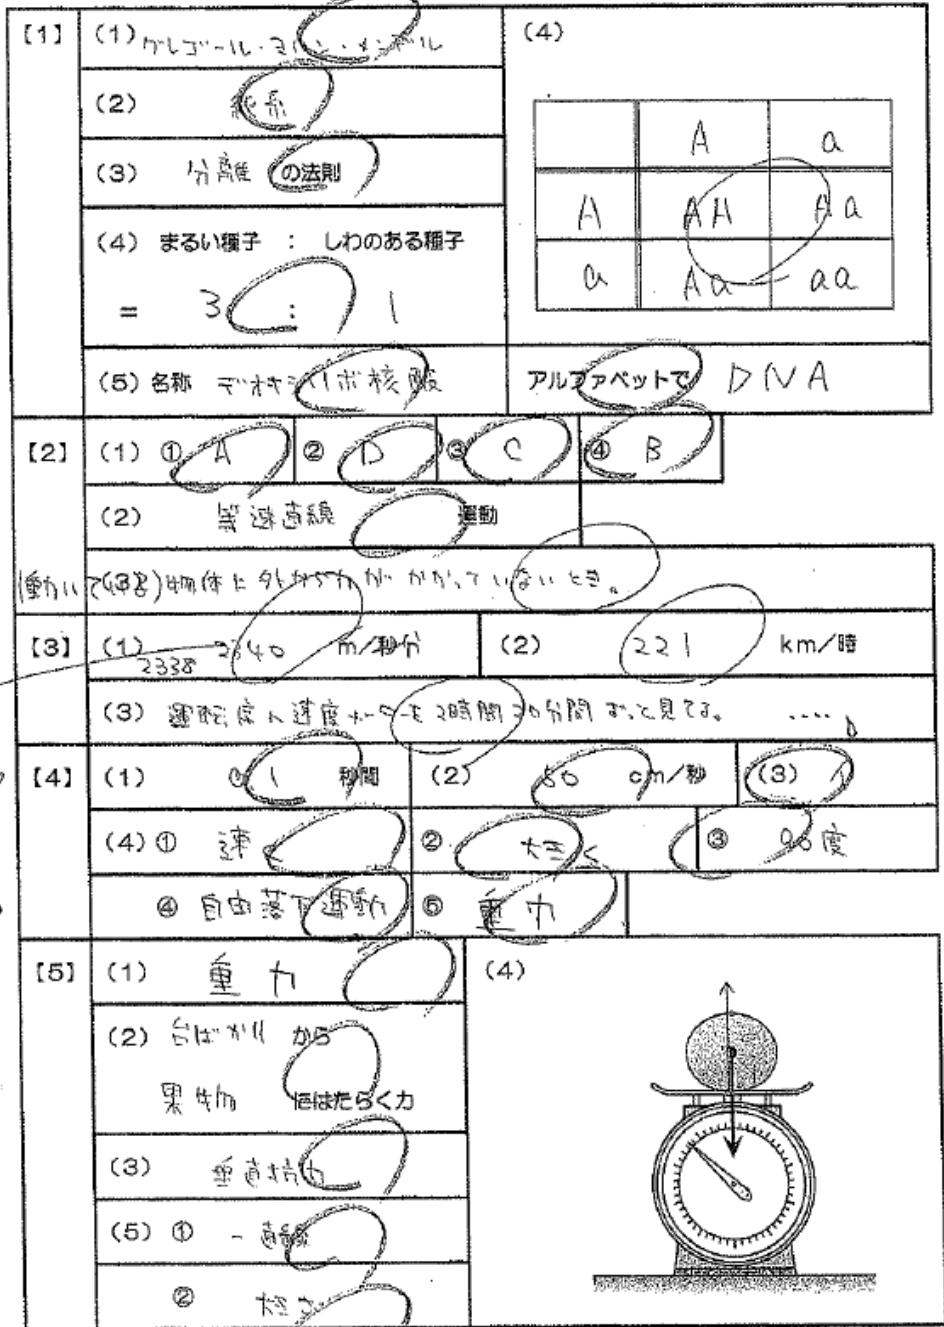 【1】 (1) グレゴール・ヨハン・メンデル
(2) 純系
(3) 分離 の法則
(4) まるい種子 : しわのある種子
= 3 : 1
(4)
A a
A AA Aa
a Aa aa
(5) 名称 デオキシリボ核酸 アルファベットで DNA
【2】 (1) ① A ② D ③ C ④ B
(2) 等速直線 運動
(3) 物体に外から力がかかっていないとき。
【3】 (1) 2340 m/分 (2) 221 km/時
2338
(3) 運転席で速度メーターを2時間30分間ずっと見てる。 ....
【4】 (1) 0.1 秒間 (2) 50 cm/秒 (3) イ
(4) ① 速く ② 大きく ③ 90度
④ 自由落下運動 ⑤ 重力
【5】 (1) 重力 (4)
(2) 台ばかり から
果物 にはたらく力
(3) 垂直抗力
(5) ① 一直線
② 大きさ